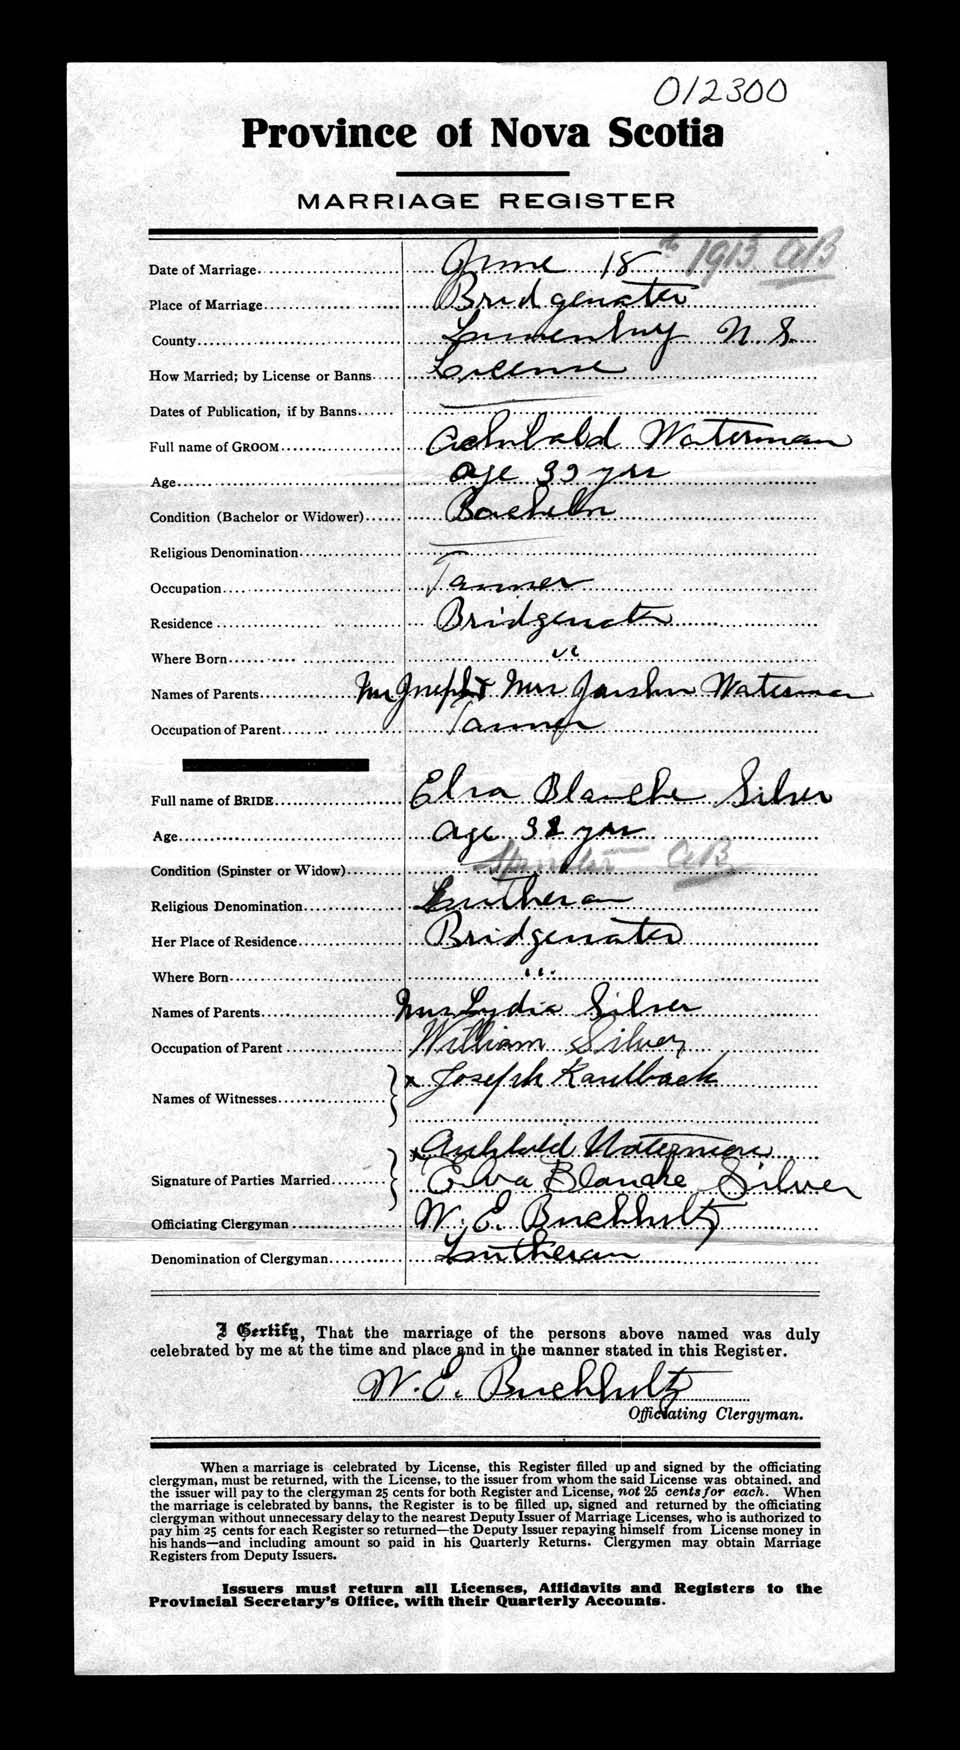 012300
Province of Nova Scotia
MARRIAGE REGISTER
Date of Marriage June 18th 1913 AB
Place of Marriage Bridgewater
County Lunenburg N.S.
How Married; by License or Banns License
Dates of Publication, if by Banns
Full name of GROOM Archibald Waterman
Age age 39 yrs
Condition (Bachelor or Widower) Bachelor
Religious Denomination
Occupation Tanner
Residence Bridgewater
Where Born "
Names of Parents Mr Joseph & Mrs Waterman
Occupation of Parent Tanner
Full name of BRIDE Elva Blanche Silver
Age age 38 yrs
Condition (Spinster or Widow) Spinster AB
Religious Denomination Lutheran
Her Place of Residence Bridgewater
Where Born "
Names of Parents Mrs Lydia Silver
Occupation of Parent William Silver
Names of Witnesses x Joseph Kaulback
x Archibald Waterman
Signature of Parties Married Elva Blanche Silver
Officiating Clergyman W. E. Buchholtz
Denomination of Clergyman Lutheran
I Certify, That the marriage of the persons above named was duly
celebrated by me at the time and place and in the manner stated in this Register.
W. E. Buchholtz
Officiating Clergyman.
When a marriage is celebrated by License, this Register filled up and signed by the officiating
clergyman, must be returned, with the License, to the issuer from whom the said License was obtained, and
the issuer will pay to the clergyman 25 cents for both Register and License, not 25 cents for each. When
the marriage is celebrated by banns, the Register is to be filled up, signed and returned by the officiating
clergyman without unnecessary delay to the nearest Deputy Issuer of Marriage Licenses, who is authorized to
pay him 25 cents for each Register so returned—the Deputy Issuer repaying himself from License money in
his hands—and including amount so paid in his Quarterly Returns. Clergymen may obtain Marriage
Registers from Deputy Issuers.
Issuers must return all Licenses, Affidavits and Registers to the
Provincial Secretary's Office, with their Quarterly Accounts.